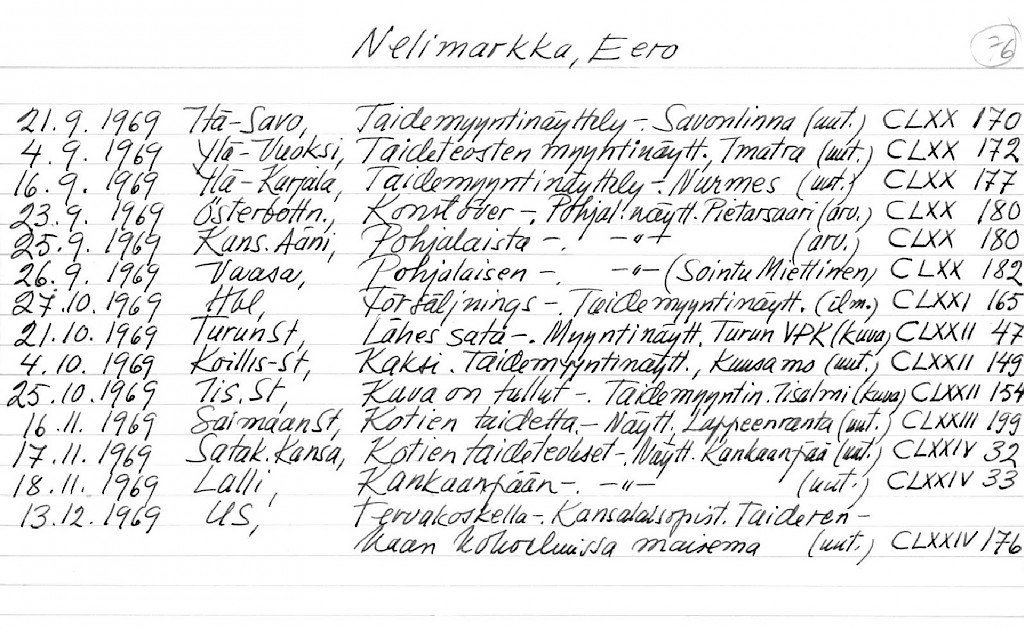 Nelimarkka, Eero 76
21.9.1969 Itä-Savo, Taidemyyntinäyttely-. Savonlinna (uut.) CLXX 170
4.9.1969 Ylä-Vuoksi, Taideteosten myyntinäytt., Imatra (uut.) CLXX 172
16.9.1969 Ylä-Karjala, Taidemyyntinäyttely-. Nurmes (uut.) CLXX 177
23.9.1969 Österbottn., Konst över-. Pohjal. näytt. Pietarsaari (arv.) CLXX 180
25.9.1969 Kans. Ääni, Pohjalaista -. -"- (arv.) CLXX 180
26.9.1969 Vaasa, Pohjalaisen -. -"- (Sointu Miettinen) CLXX 182
27.10.1969 Hbl, Försäljnings-. Taidemyyntinäytt. (ilm.) CLXXI 165
21.10.1969 TurunSt, Lähes sata-. Myyntinäytt. Turun VPK (kuva) CLXXII 47
4.10.1969 Koillis-St, Kaksi. Taidemyyntinäytt., Kuusamo (uut.) CLXXII 149
25.10.1969 Iis.St, Kuva on tullut-. Taidemyyntin. Iisalmi (kuva) CLXXII 154
16.11.1969 SaimaanSt, Kotien taidetta,- Näytt. Lappeenranta (uut.) CLXXIII 199
17.11.1969 Satak.Kansa, Kotien taideteokset-. Näytt. Kankaanpää (uut.) CLXXIV 32
18.11.1969 Lalli, Kankaanpään-. -"- (uut.) CLXXIV 33
13.12.1969 US, Tervakoskella-. Kansalaisopist. Taideren-
kaan kokoelmissa maisema (uut.) CLXXIV 176